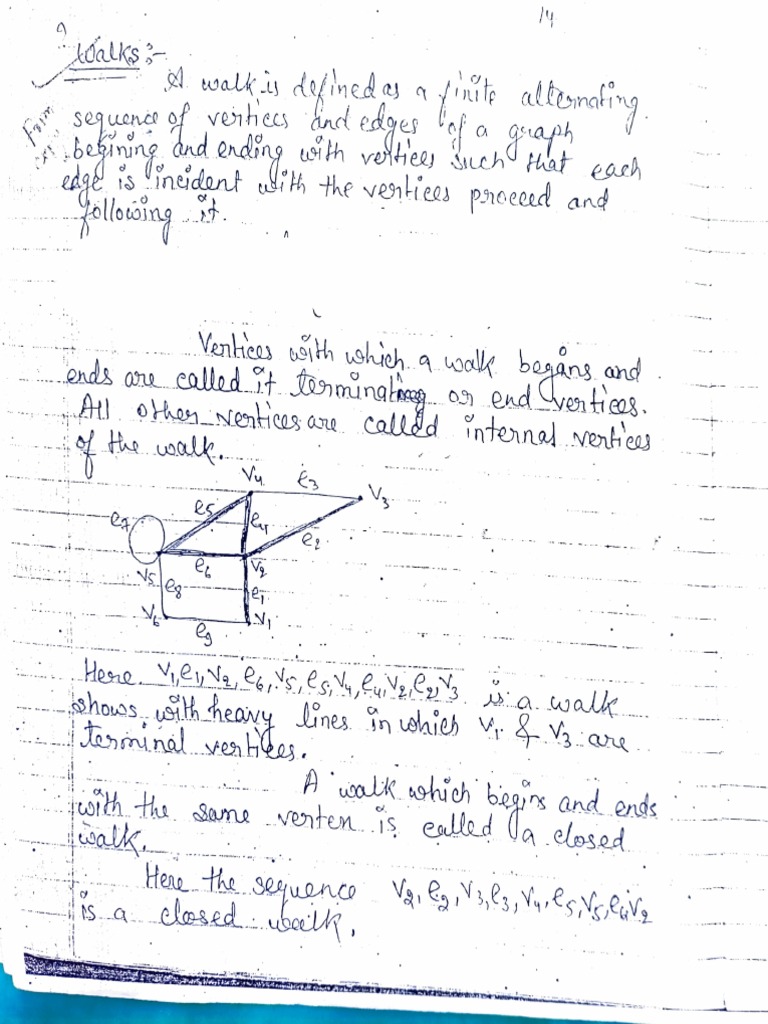 14
Walks :-
A walk is defined as a finite alternating
sequence of vertices and edges of a graph
begining and ending with vertices such that each
edge is incident with the vertices proceed and
following it.
Vertices with which a walk begans and
ends are called it terminating or end vertices.
All other vertices are called internal vertices
of the walk.
V4 e3 V3
e7 e5 e4 e2
V5 e6 V2
e8 e1
V6 e9 V1
Here V1, e1, V2, e6, V5, e5, V4, e4, V2, e2, V3 is a walk
shows with heavy lines in which V1 & V3 are
terminal vertices.
A walk which begins and ends
with the same verten is called a closed
walk.
Here the sequence V2, e2, V3, e3, V4, e5, V5, e4 V2
is a closed walk.